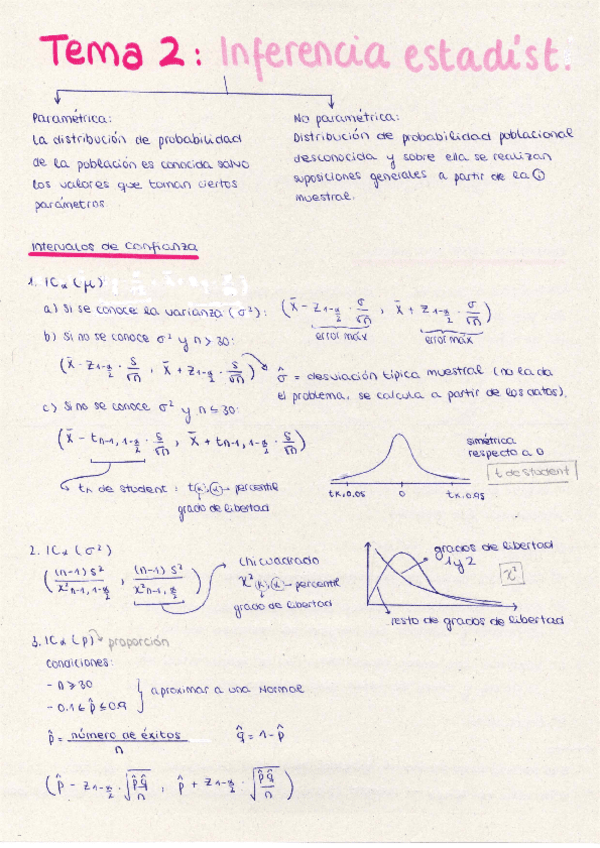 Tema 2: Inferencia estadíst.
Paramétrica:
La distribución de probabilidad
de la población es conocida salvo
los valores que toman ciertos
parámetros
No paramétrica:
Distribución de probabilidad poblacional
desconocida y sobre ella se realizan
suposiciones generales a partir de la ①
muestral.
Intervalos de confianza
1. IC∝ (μ)
a) Si se conoce la varianza (σ²): (x̄ - z₁₋∝/₂ · σ/√n , x̄ + z₁₋∝/₂ · σ/√n)
error máx error máx
b) Si no se conoce σ² y n > 30:
(x̄ - z₁₋∝/₂ · S/√n , x̄ + z₁₋∝/₂ · S/√n)
σ̂ = desviación típica muestral (no la da
el problema, se calcula a partir de los datos).
c) Si no se conoce σ² y n ≤ 30:
(x̄ - t n-1, 1-∝/2 · S/√n , x̄ + t n-1, 1-∝/2 · S/√n)
tₖ de student : t(k),(∝) percentil
grado de libertad
simétrica
respecto a 0
t de student
tk,0,05 0 tk,0,95
2. IC∝ (σ²)
((n-1) S² / χ² n-1, 1-∝/2 , (n-1) S² / χ² n-1, ∝/2)
chi cuadrado
χ² (k),(∝) percentil
grado de libertad
grados de libertad
1 y 2
χ²
resto de grados de libertad
3. IC∝ (p) proporción
condiciones:
- n ≥ 30
- 0.1 ≤ p̂ ≤ 0.9
aproximar a una Normal
p̂ = número de éxitos / n q̂ = 1 - p̂
(p̂ - z₁₋∝/₂ · √(p̂q̂/n) , p̂ + z₁₋∝/₂ · √(p̂q̂/n))